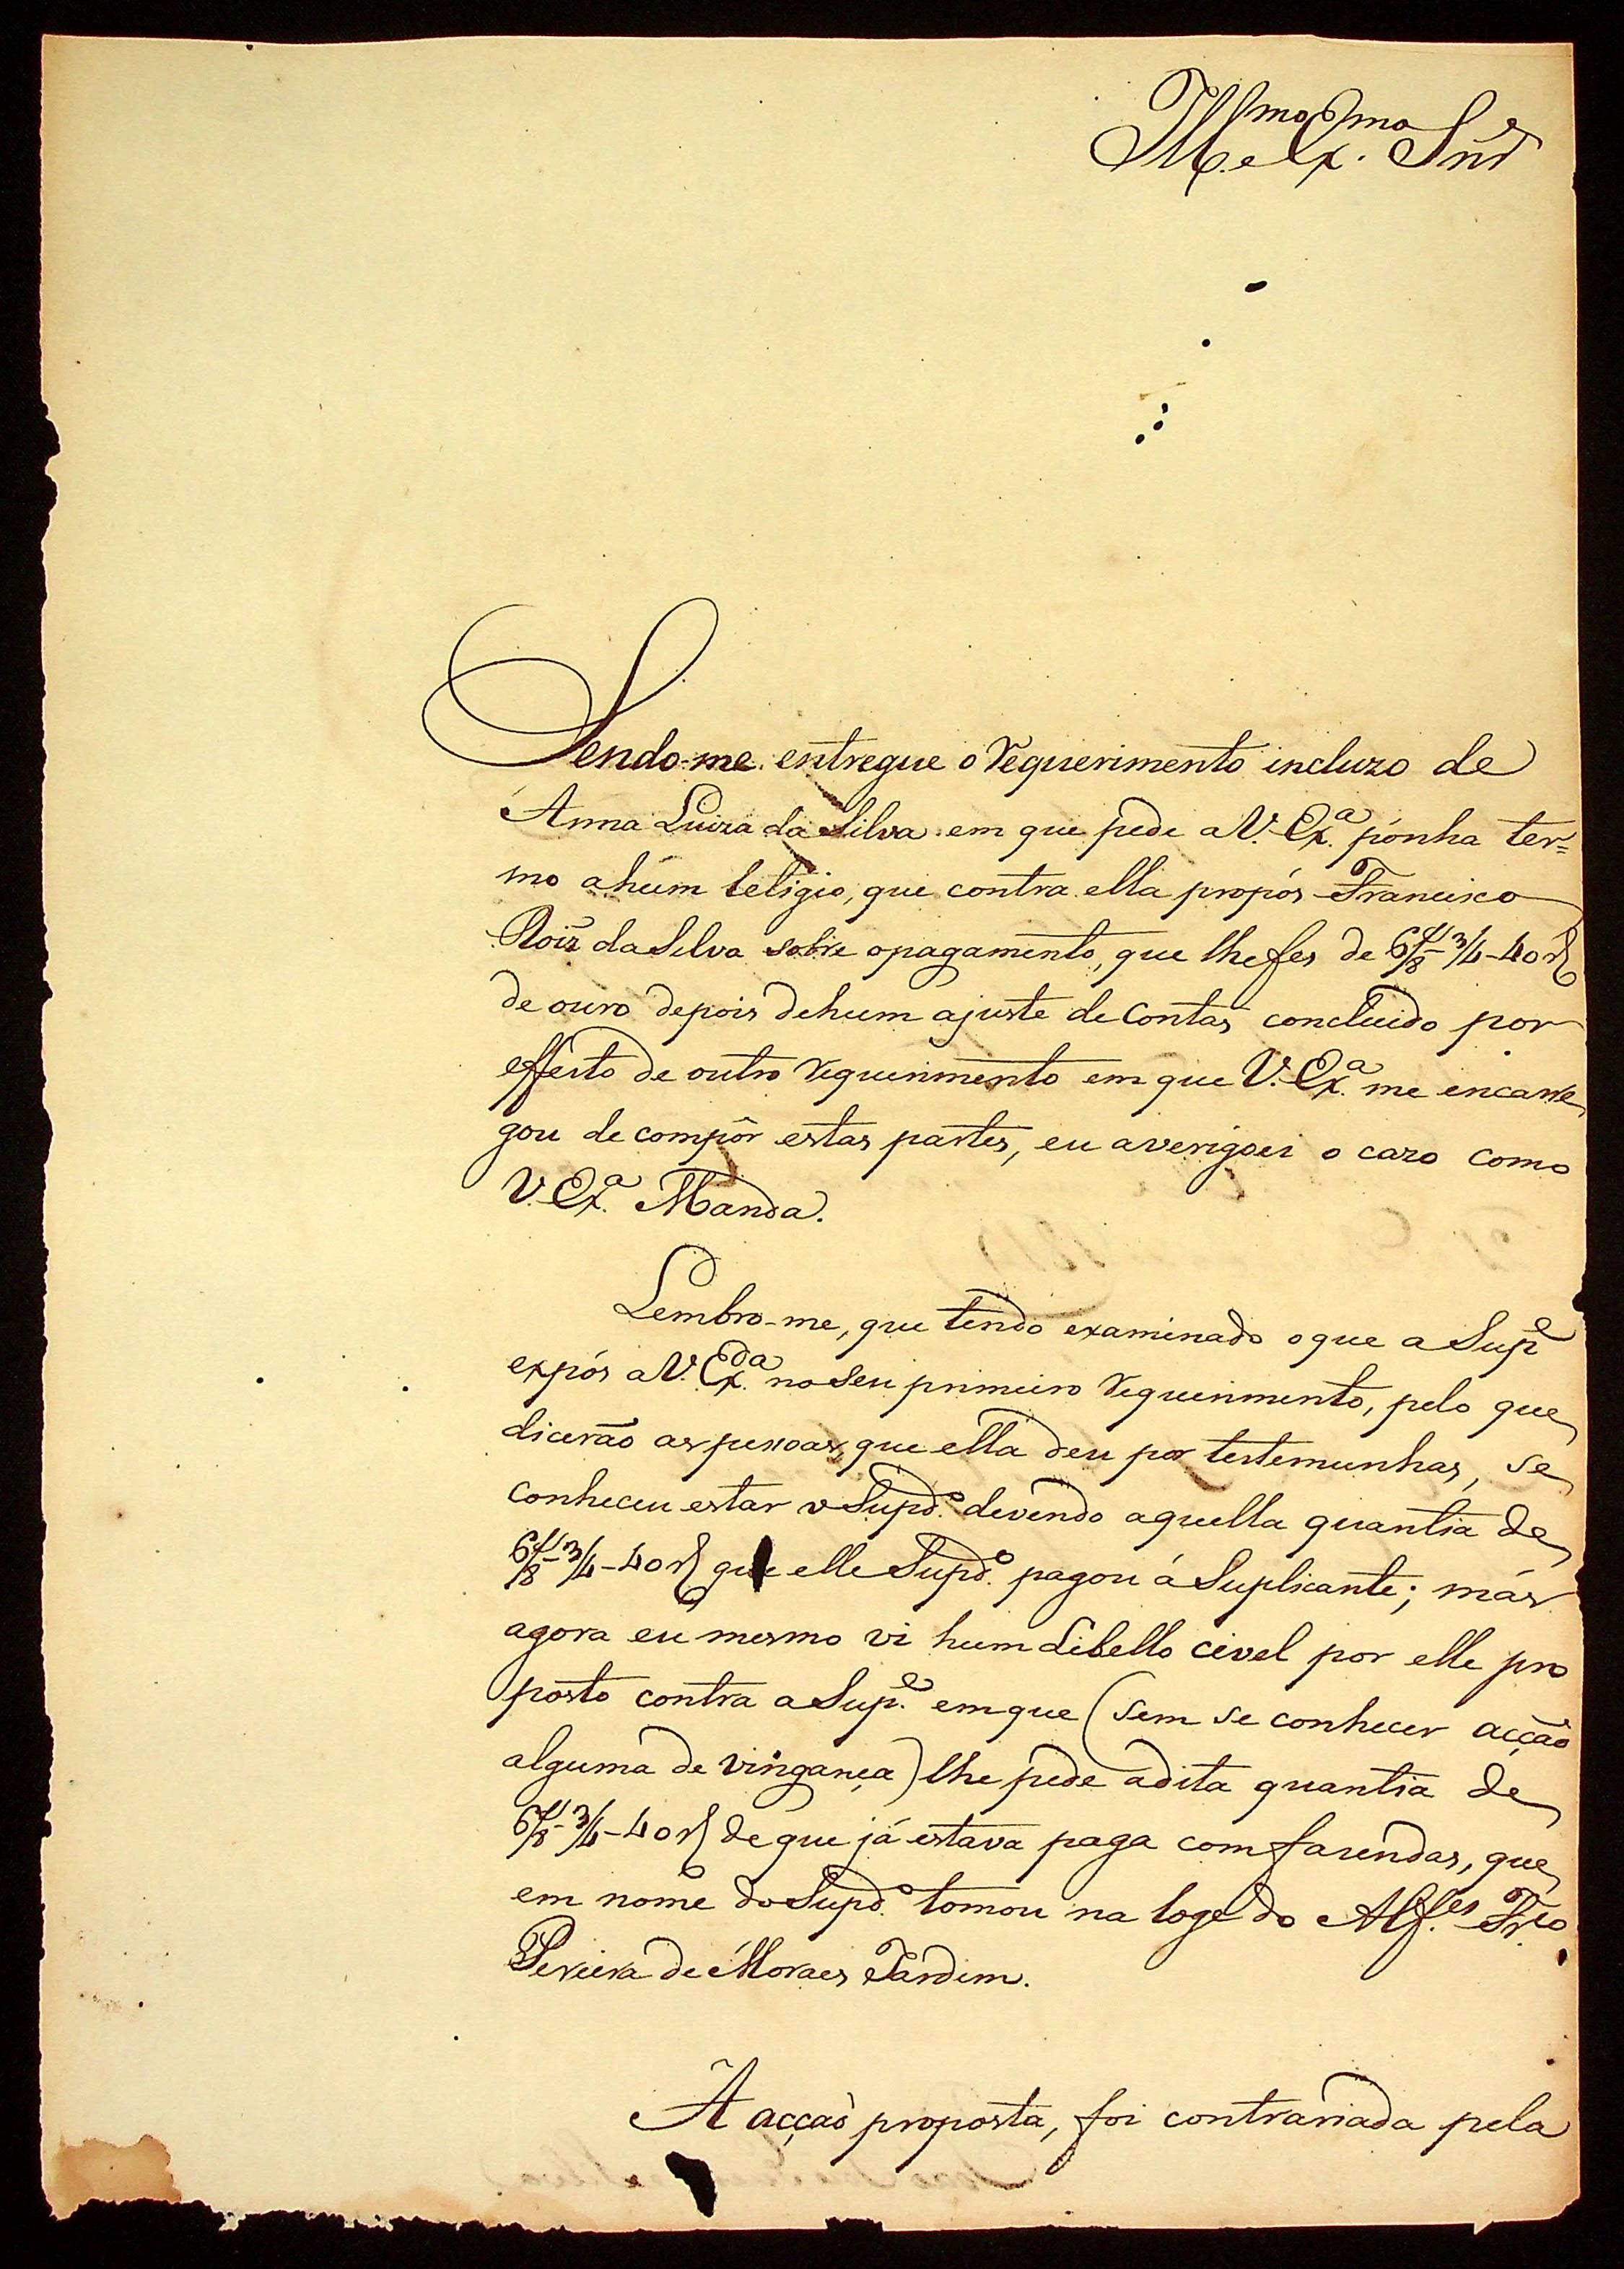 Ill.mo e Ex.mo Snr̃
Sendo-me entregue o requerimento incluzo de
Anna Luiza da Silva em que pede a V. Ex.ª pônha ter=
mo a húm letigio, que contra ella propós Francisco
Roiz̃ da Silva sobre o pagamento, que lhe fes de 6/8-3/4-40 r̃s
de ouro depois de hum ajuste de Contas concluido por
effeito de outro requerimento em que V. Ex.ª me encarre
gou de compôr estas partes, eu averigoei o cazo como
V. Ex.ª Manda.
Lembro-me, que tendo examinado o que a Sup.e
expós a V. Ex.ª no seu primeiro requerimento, pelo que
dicerão as pessoas, que ella deu por testemunhas, se
conheceu estar o Supd.o devendo aquella quantia de
6/8-3/4-40 r̃s que elle Supd.o pagou á Suplicante; más
agora eu mesmo vi hum Libello civel por elle pro
posto contra a Sup.e em que (sem se conhecer acção
alguma de vingança) lhe pede a dita quantia de
6/8-3/4-40 r̃s de que já estava paga com fazendas, que
em nome do Supd.o tomou na loge do Alf.es Fr.co
Pereira de Moraes Jardim.
A acçaõ proposta, foi contrariada pela